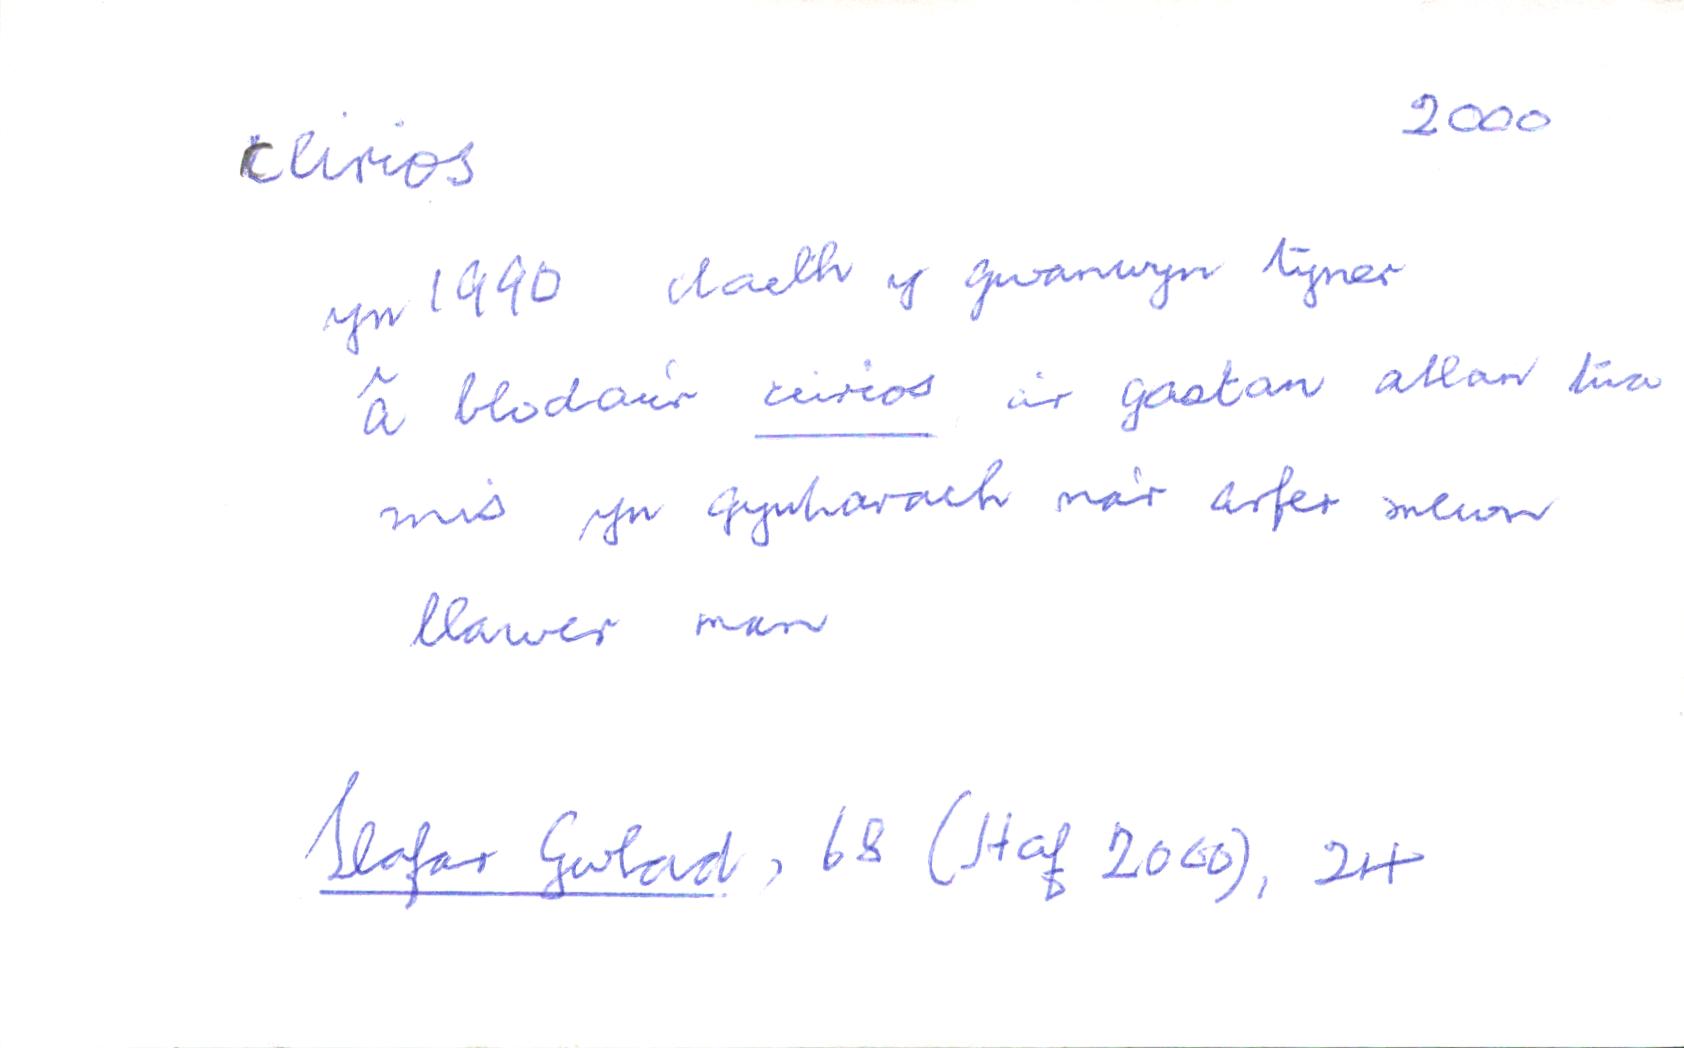 ceirios 2000
yn 1990 daeth y gwanwyn tyner
â blodau'r ceirios a'r gastan allan tua
mis yn gynharach na'r arfer mewn
llawer man
Llafar Gwlad, 68 (Haf 2000), 24